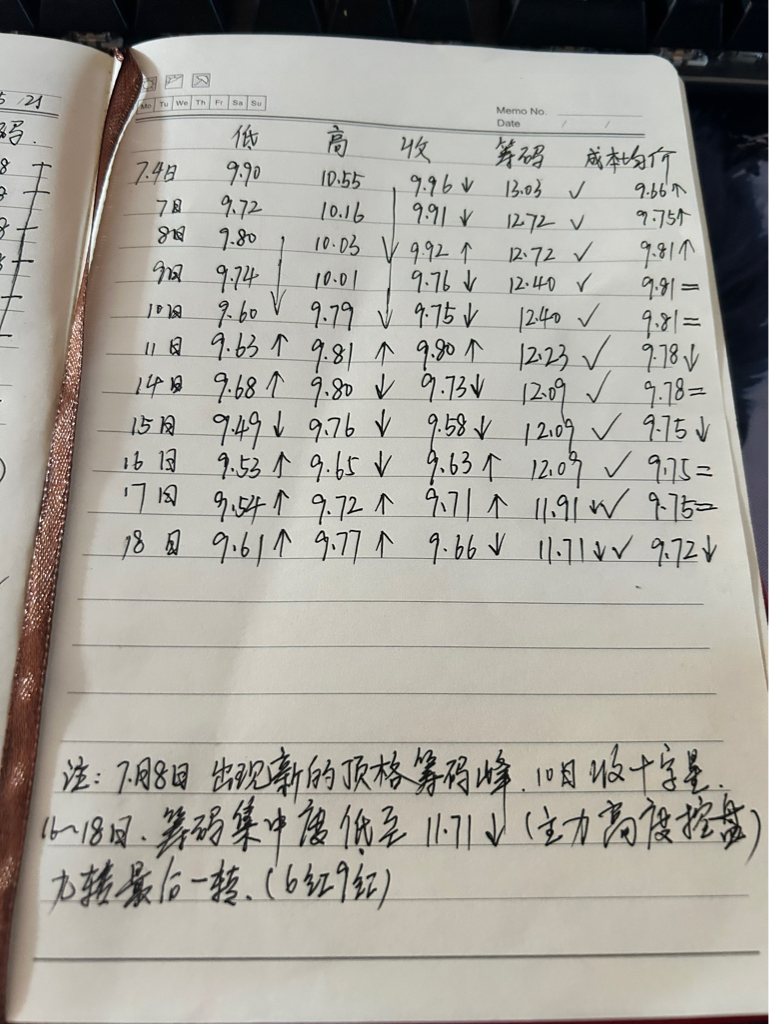 Mo Tu We Th Fr Sa Su
Memo No.
Date / /
低 高 收 筹码 成本均价
7.4日 9.90 10.55 9.96↓ 13.03 ✓ 9.66↑
7日 9.72 10.16 9.91↓ 12.72 ✓ 9.75↑
8日 9.80 10.03 9.92↑ 12.72 ✓ 9.81↑
9日 9.74 10.01 9.76↓ 12.40 ✓ 9.81=
10日 9.60 9.79 9.75↓ 12.40 ✓ 9.81=
11日 9.63↑ 9.81↑ 9.80↑ 12.23 ✓ 9.78↓
14日 9.68↑ 9.80↓ 9.73↓ 12.09 ✓ 9.78=
15日 9.49↓ 9.76↓ 9.58↓ 12.09 ✓ 9.75↓
16日 9.53↑ 9.65↓ 9.63↑ 12.09 ✓ 9.75=
17日 9.54↑ 9.72↑ 9.71↑ 11.91↓✓ 9.75=
18日 9.61↑ 9.77↑ 9.66↓ 11.71↓✓ 9.72↓
注：7月8日 出现新的顶格筹码峰．10日 收十字星．
16~18日、筹码集中度低至 11.71↓（主力高度控盘）
九转最后一转、（6红9红）